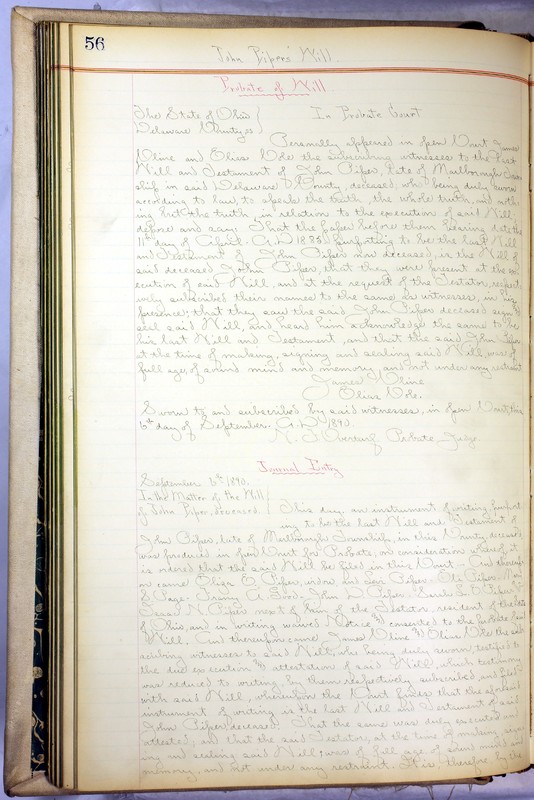 56
John Pipers' Will.
Probate of Will
The State of Ohio
Delaware County, ss
In Probate Court
Personally appeared in open Court James
Cline and the subscribing witnesses to the last
Will and Testament of John Piper, late of Marlborough Town-
ship in said Delaware County, deceased, who being duly sworn
according to law, to speak the truth, the whole truth, and noth-
ing but the truth, in relation to the execution of said Will,
depose and say: That the paper before them bearing date the
11th day of April A.D. 1885, purporting to be the last Will
and Testament of John Piper now deceased, is the Will of
said deceased John Piper, that they were present at the ex-
ecution of said Will, and at the request of the Testator, respect-
ively subscribed their names to the same as witnesses, in his
presence; that they saw the said John Piper deceased sign &
seal said Will, and heard him acknowledge the same to be
his last Will and Testament, and that the said John Piper
at the time of making, signing and sealing said Will, was of
full age, of sound mind and memory, and not under any restraint
James Cline
Sworn to and subscribed by said witnesses, in open Court, this
6th day of September. A.D. 1890.
Probate Judge.
Journal Entry
September 1890.
In the Matter of the Will
of John Piper, deceased
This day, an instrument of writing, purport-
ing to be the last Will and Testament of
John Piper, late of Marlborough Township, in this County, deceased
was produced in open Court for Probate, on consideration whereof, it
is ordered that the said Will be filed in this Court - And thereup-
on came Eliza Piper, widow, and Levi Piper - Piper -
Page - A. Good - John D. Piper - Piper
Isaac N. Piper next of kin of the Testator, resident of the State
of Ohio, and in writing waived Notice & consented to the probate said
Will. And thereupon came James Cline & the sub-
scribing witnesses to said Will, who being duly sworn, testified to
the due execution & attestation of said Will, which testimony
was reduced to writing by them respectively subscribed and filed
with said Will, whereupon the Court finds that the aforesaid
instrument of writing is the last Will and Testament of said
John Piper deceased. That the same was duly executed and
attested, and that the said Testator, at the time of making, sign-
ing and sealing said Will, was of full age, of sound mind and
memory, and not under any restraint. It is, therefore, by the